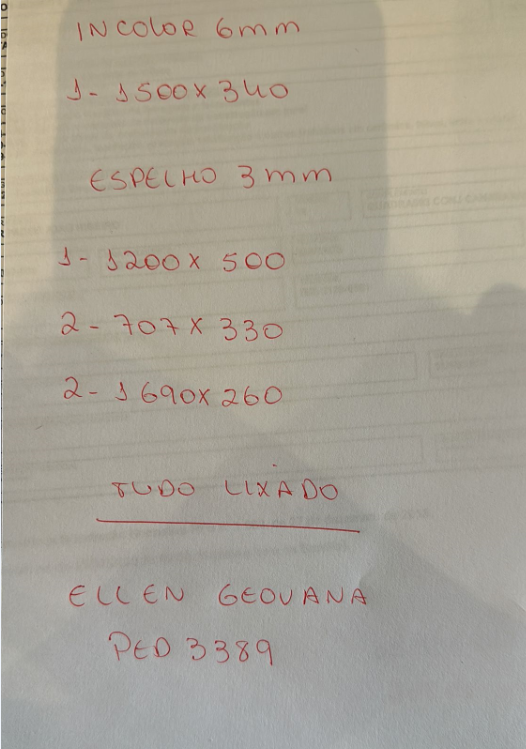 INCOLOR 6mm
1- 1500x340
ESPELHO 3mm
1- 1200x 500
2- 707x 330
2- 1690x260
TUDO LIXADO
ELLEN GEOVANA
PED 3389